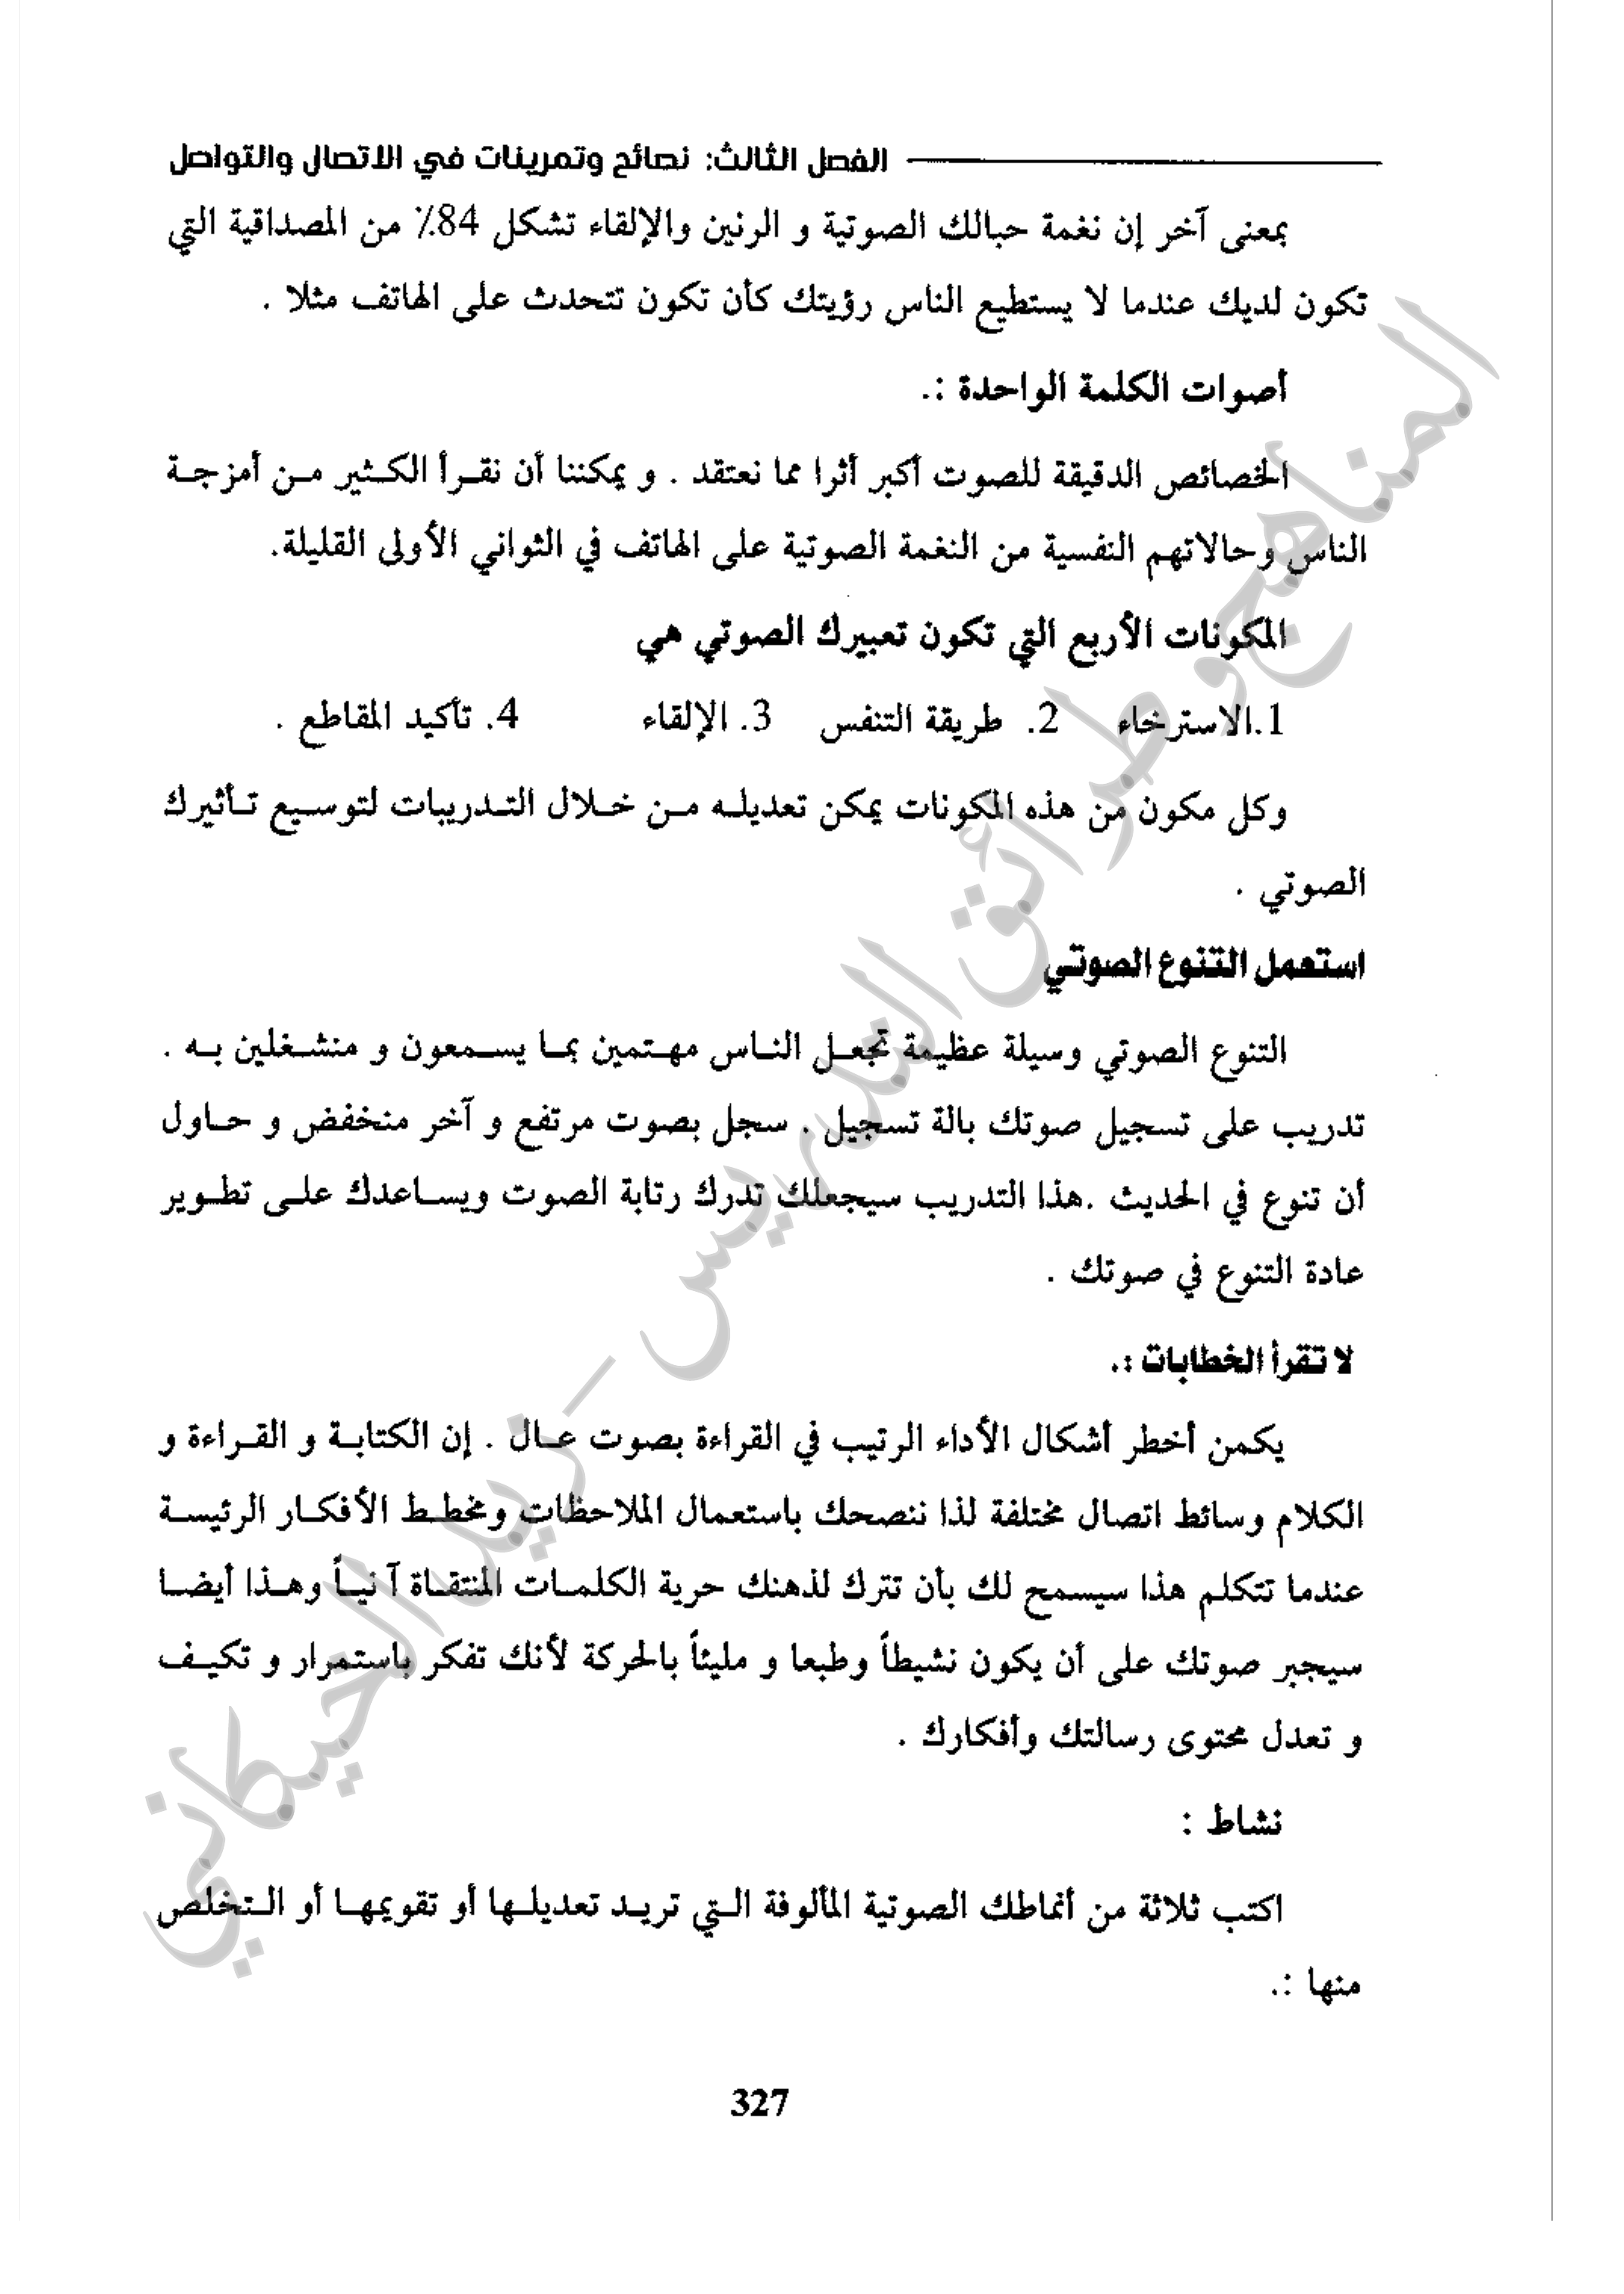 الفصل الثالث: نصائح وتمرينات في الاتصال والتواصل
بمعنى آخر إن نغمة حبالك الصوتية و الرنين والإلقاء تشكل 84٪ من المصداقية التي
تكون لديك عندما لا يستطيع الناس رؤيتك كأن تكون تتحدث على الهاتف مثلا .
أصوات الكلمة الواحدة :.
الخصائص الدقيقة للصوت أكبر أثرا مما نعتقد . و يمكننا أن نقرأ الكثير من أمزجة
الناس وحالاتهم النفسية من النغمة الصوتية على الهاتف في الثواني الأولى القليلة.
المكونات الأربع التي تكون تعبيرك الصوتي هي
1.الاسترخاء 2. طريقة التنفس 3. الإلقاء 4. تأكيد المقاطع .
وكل مكون من هذه المكونات يمكن تعديله من خلال التدريبات لتوسيع تأثيرك
الصوتي .
استعمل التنوع الصوتي
التنوع الصوتي وسيلة عظيمة تجعل الناس مهتمين بما يسمعون و منشغلين به .
تدريب على تسجيل صوتك بالة تسجيل . سجل بصوت مرتفع و آخر منخفض و حاول
أن تنوع في الحديث .هذا التدريب سيجعلك تدرك رتابة الصوت ويساعدك على تطوير
عادة التنوع في صوتك .
لا تقرأ الخطابات :.
يكمن أخطر أشكال الأداء الرتيب في القراءة بصوت عال . إن الكتابة و القراءة و
الكلام وسائط اتصال مختلفة لذا ننصحك باستعمال الملاحظات ومخطط الأفكار الرئيسة
عندما تتكلم هذا سيسمح لك بأن تترك لذهنك حرية الكلمات المنتقاة آ نياً وهذا أيضا
سيجبر صوتك على أن يكون نشيطاً وطبعا و مليئاً بالحركة لأنك تفكر باستمرار و تكيف
و تعدل محتوى رسالتك وأفكارك .
نشاط :
اكتب ثلاثة من أنماطك الصوتية المألوفة التي تريد تعديلها أو تقويمها أو التخلص
منها :.
327
المناهج و طرائق التدريس - زيد الخيكاني